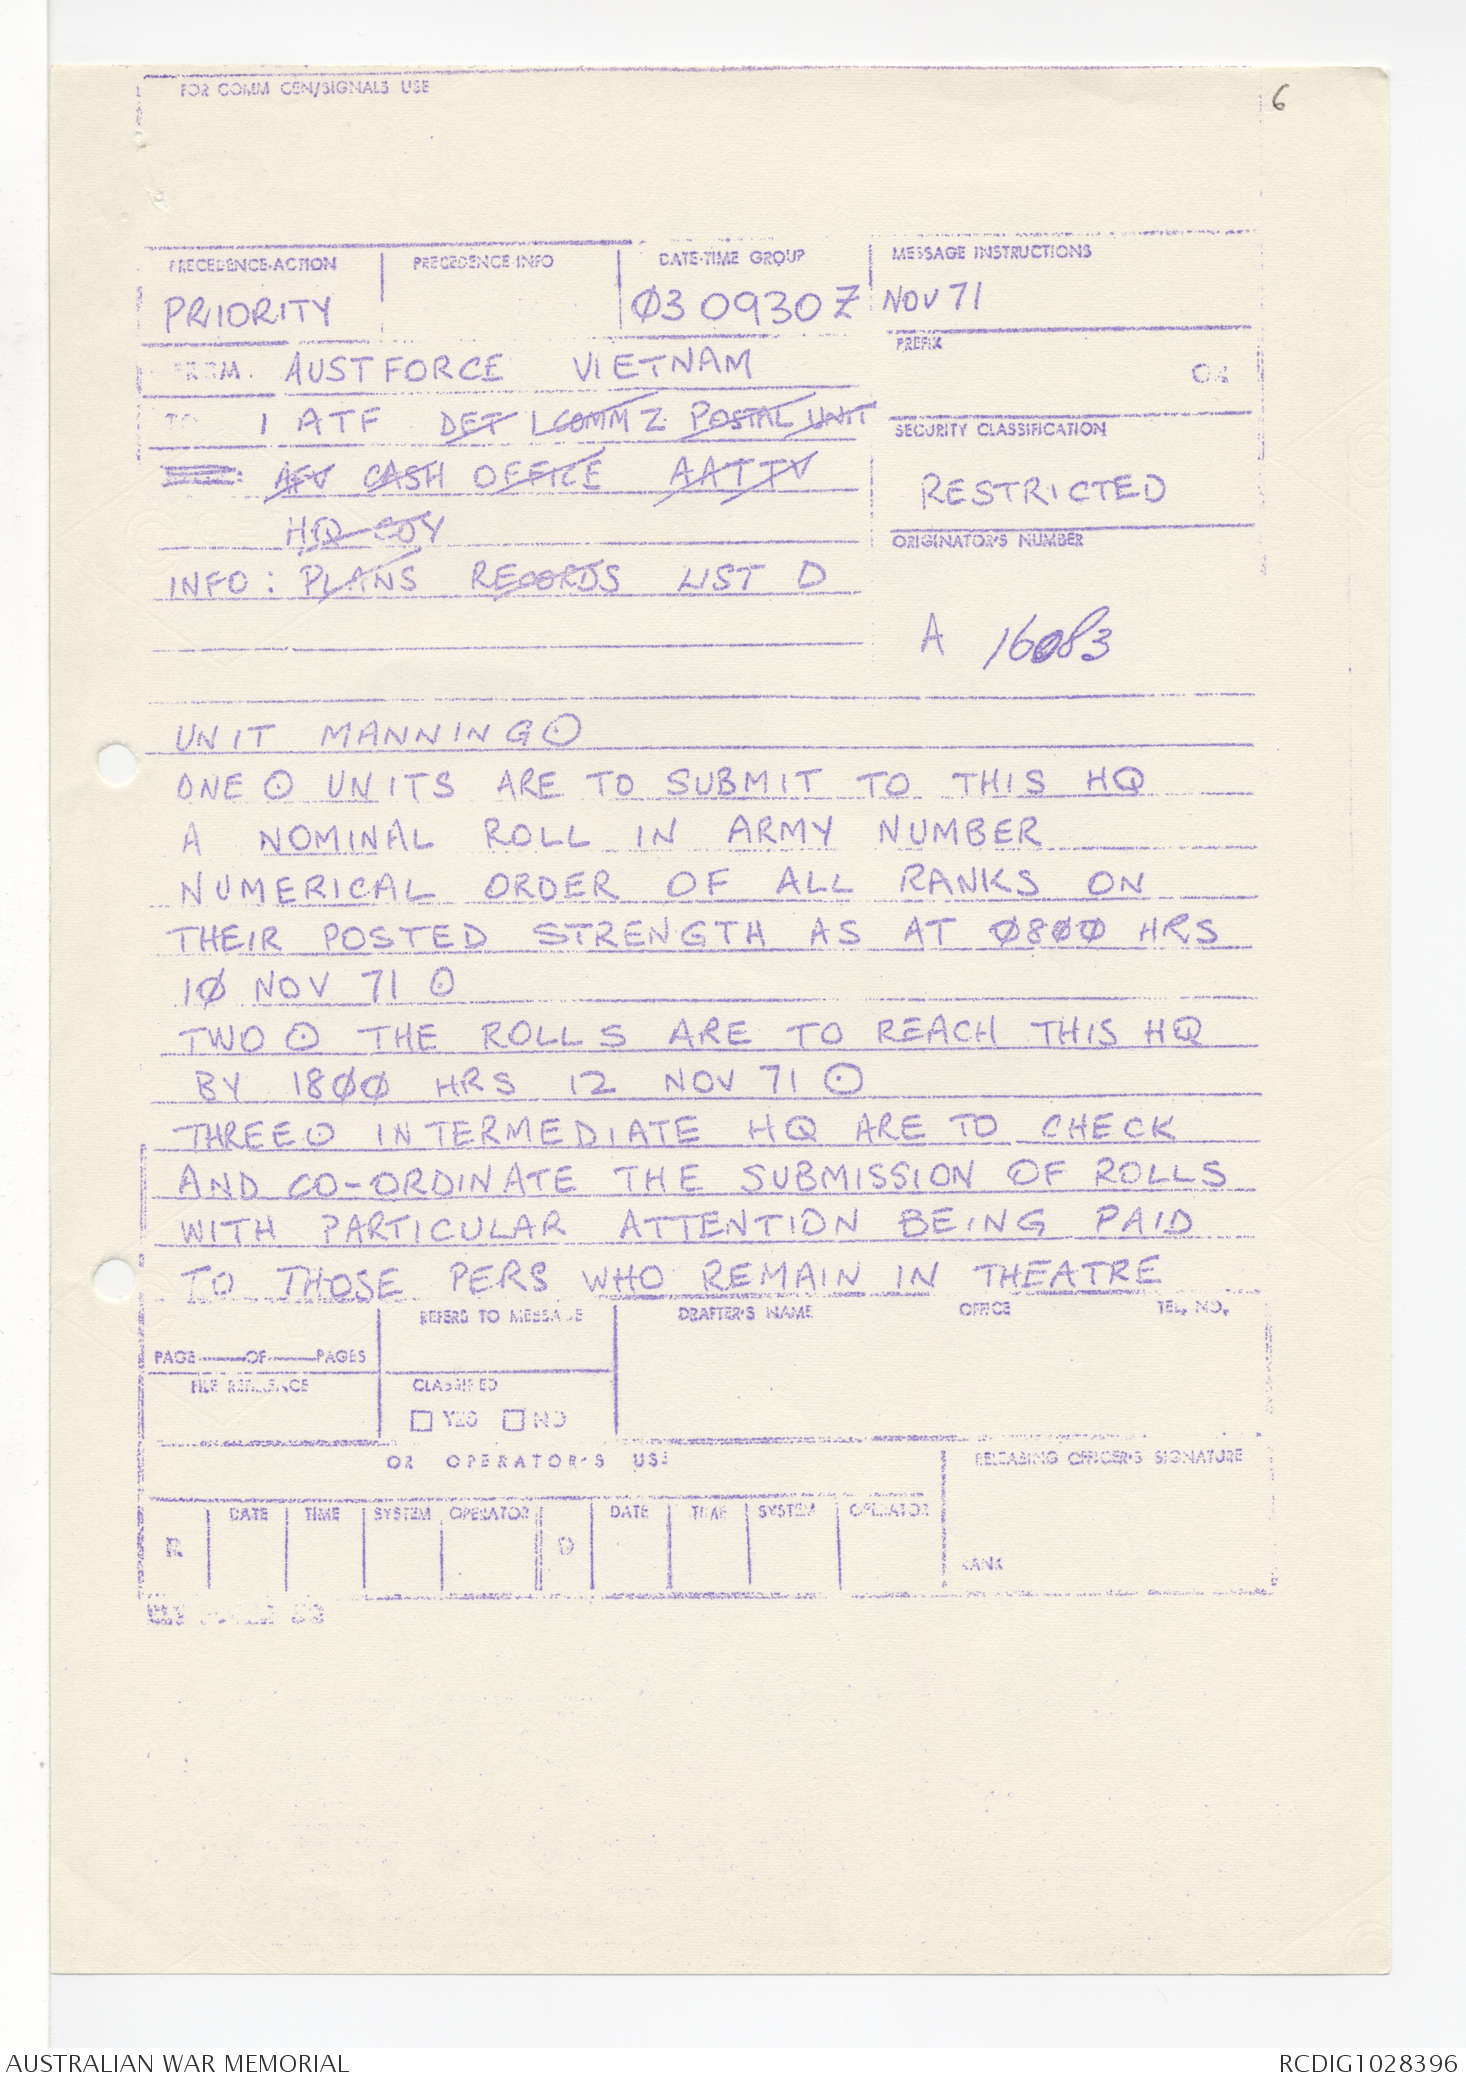 FOR COMM CEN/SIGNALS USE
6
PRECEDENCE-ACTION PRECEDENCE-INFO DATE-TIME GROUP MESSAGE INSTRUCTIONS
PRIORITY Ø3 0930 Z NOV 71
FROM. AUSTFORCE VIETNAM PREFIX
OR
TO 1 ATF DET 1 COMM Z POSTAL UNIT
SECURITY CLASSIFICATION
AFV CASH OFFICE AATTV
RESTRICTED
HQ COY
ORIGINATOR'S NUMBER
INFO: PLANS RECORDS LIST D
A 16083
UNIT MANNING ⊙
ONE ⊙ UNITS ARE TO SUBMIT TO THIS HQ
A NOMINAL ROLL IN ARMY NUMBER
NUMERICAL ORDER OF ALL RANKS ON
THEIR POSTED STRENGTH AS AT Ø8ØØ HRS
1Ø NOV 71 ⊙
TWO ⊙ THE ROLLS ARE TO REACH THIS HQ
BY 18ØØ HRS 12 NOV 71 ⊙
THREE ⊙ INTERMEDIATE HQ ARE TO CHECK
AND CO-ORDINATE THE SUBMISSION OF ROLLS
WITH PARTICULAR ATTENTION BEING PAID
TO THOSE PERS WHO REMAIN IN THEATRE
REFERS TO MESSAGE DRAFTER'S NAME OFFICE TEL. NO.
PAGE OF PAGES
FILE REFERENCE CLASSIFIED
YES NO
OR OPERATOR'S USE RELEASING OFFICER'S SIGNATURE
DATE TIME SYSTEM OPERATOR DATE TIME SYSTEM OPERATOR
R D
RANK
AUSTRALIAN WAR MEMORIAL RCDIG1028396